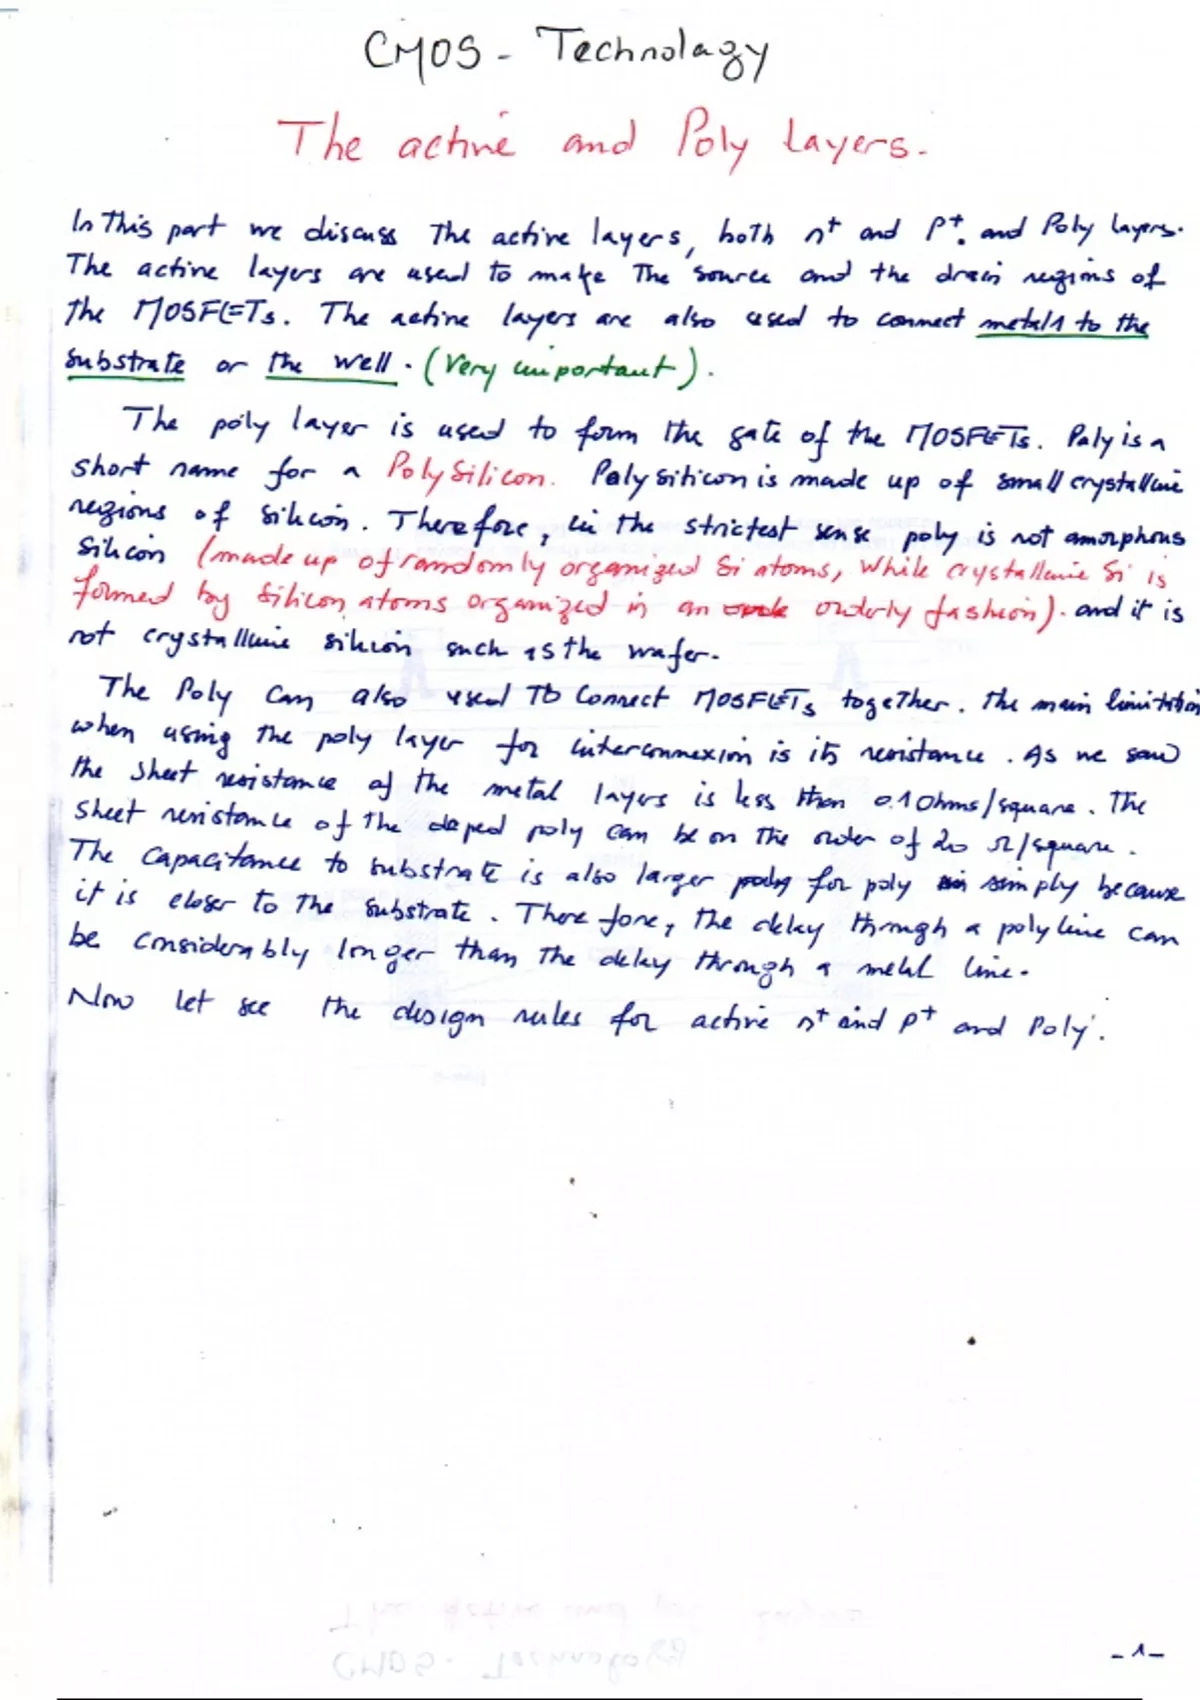 CMOS - Technology
The active and Poly Layers.
In This part we discuss The active layers, both n+ and P+. and Poly layers.
The active layers are used to make The source and the drain regions of
the MOSFETs. The active layers are also used to connect metal1 to the
substrate or the well. (Very important).
The poly layer is used to form the gate of the MOSFETs. Poly is a
short name for a PolySilicon. Polysilicon is made up of small crystalline
regions of silicon. Therefore, in the strictest sense poly is not amorphous
silicon (made up of randomly organized Si atoms, while crystalline Si is
formed by Silicon atoms organized in an orderly fashion). and it is
not crystalline silicon such as the wafer.
The Poly can also used To Connect MOSFETs together. the main limitation
when using the poly layer for interconnexion is its resistance. As we saw
the Sheet resistance of the metal layers is less than 0.1 Ohms/square. The
Sheet resistance of the doped poly can be on the order of 20 Ω/square.
The Capacitance to substrate is also larger for poly simply because
it is closer to the substrate. Therefore, the delay through a poly line can
be considerably longer than the delay through a metal line.
Now let see the design rules for active n+ and P+ and Poly.
-1-